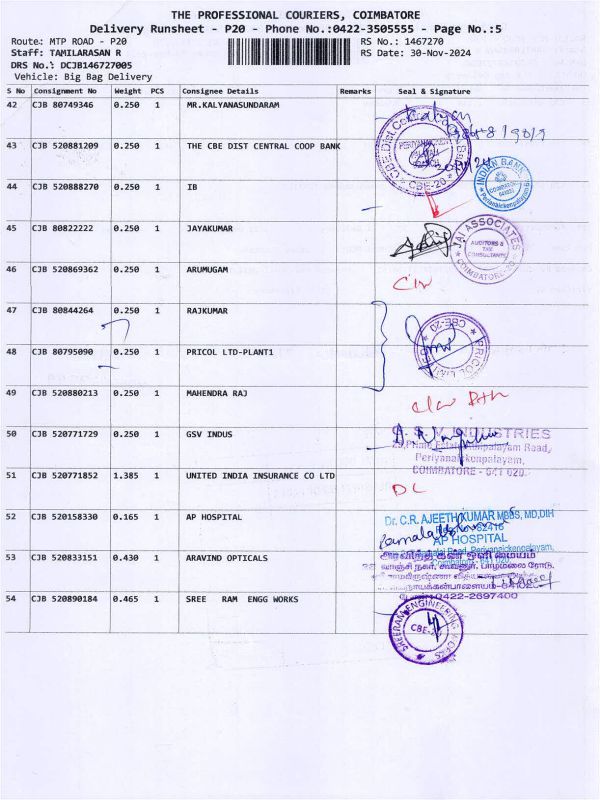 THE PROFESSIONAL COURIERS, COIMBATORE
Delivery Runsheet - P20 - Phone No.:0422-3505555 - Page No.:5
Route: MTP ROAD - P20 RS No.: 1467270
Staff: TAMILARASAN R RS Date: 30-Nov-2024
DRS No.: DCJB146727005
Vehicle: Big Bag Delivery
S No Consignment No Weight PCS Consignee Details Remarks Seal & Signature
42 CJB 80749346 0.250 1 MR.KALYANASUNDARAM
43 CJB 520881209 0.250 1 THE CBE DIST CENTRAL COOP BANK
CBE-20
44 CJB 520888270 0.250 1 IB
INDIAN BANK
45 CJB 80822222 0.250 1 JAYAKUMAR
JAI ASSOCIATES
AUDITORS & TAX CONSULTANTS
COIMBATORE-20
46 CJB 520869362 0.250 1 ARUMUGAM
47 CJB 80844264 0.250 1 RAJKUMAR
CBE-20
48 CJB 80795090 0.250 1 PRICOL LTD-PLANT1
49 CJB 520880213 0.250 1 MAHENDRA RAJ
50 CJB 520771729 0.250 1 GSV INDUS
INDUSTRIES
COIMBATORE - 641 020.
51 CJB 520771852 1.385 1 UNITED INDIA INSURANCE CO LTD
DL
52 CJB 520158330 0.165 1 AP HOSPITAL
Dr. C.R. AJEETH KUMAR MBBS, MD,DIH
AP HOSPITAL
53 CJB 520833151 0.430 1 ARAVIND OPTICALS
அரவிந்த் கண் ஒளி மையம்
0422-2697400
54 CJB 520890184 0.465 1 SREE RAM ENGG WORKS
SREERAM ENGINEERING WORKS